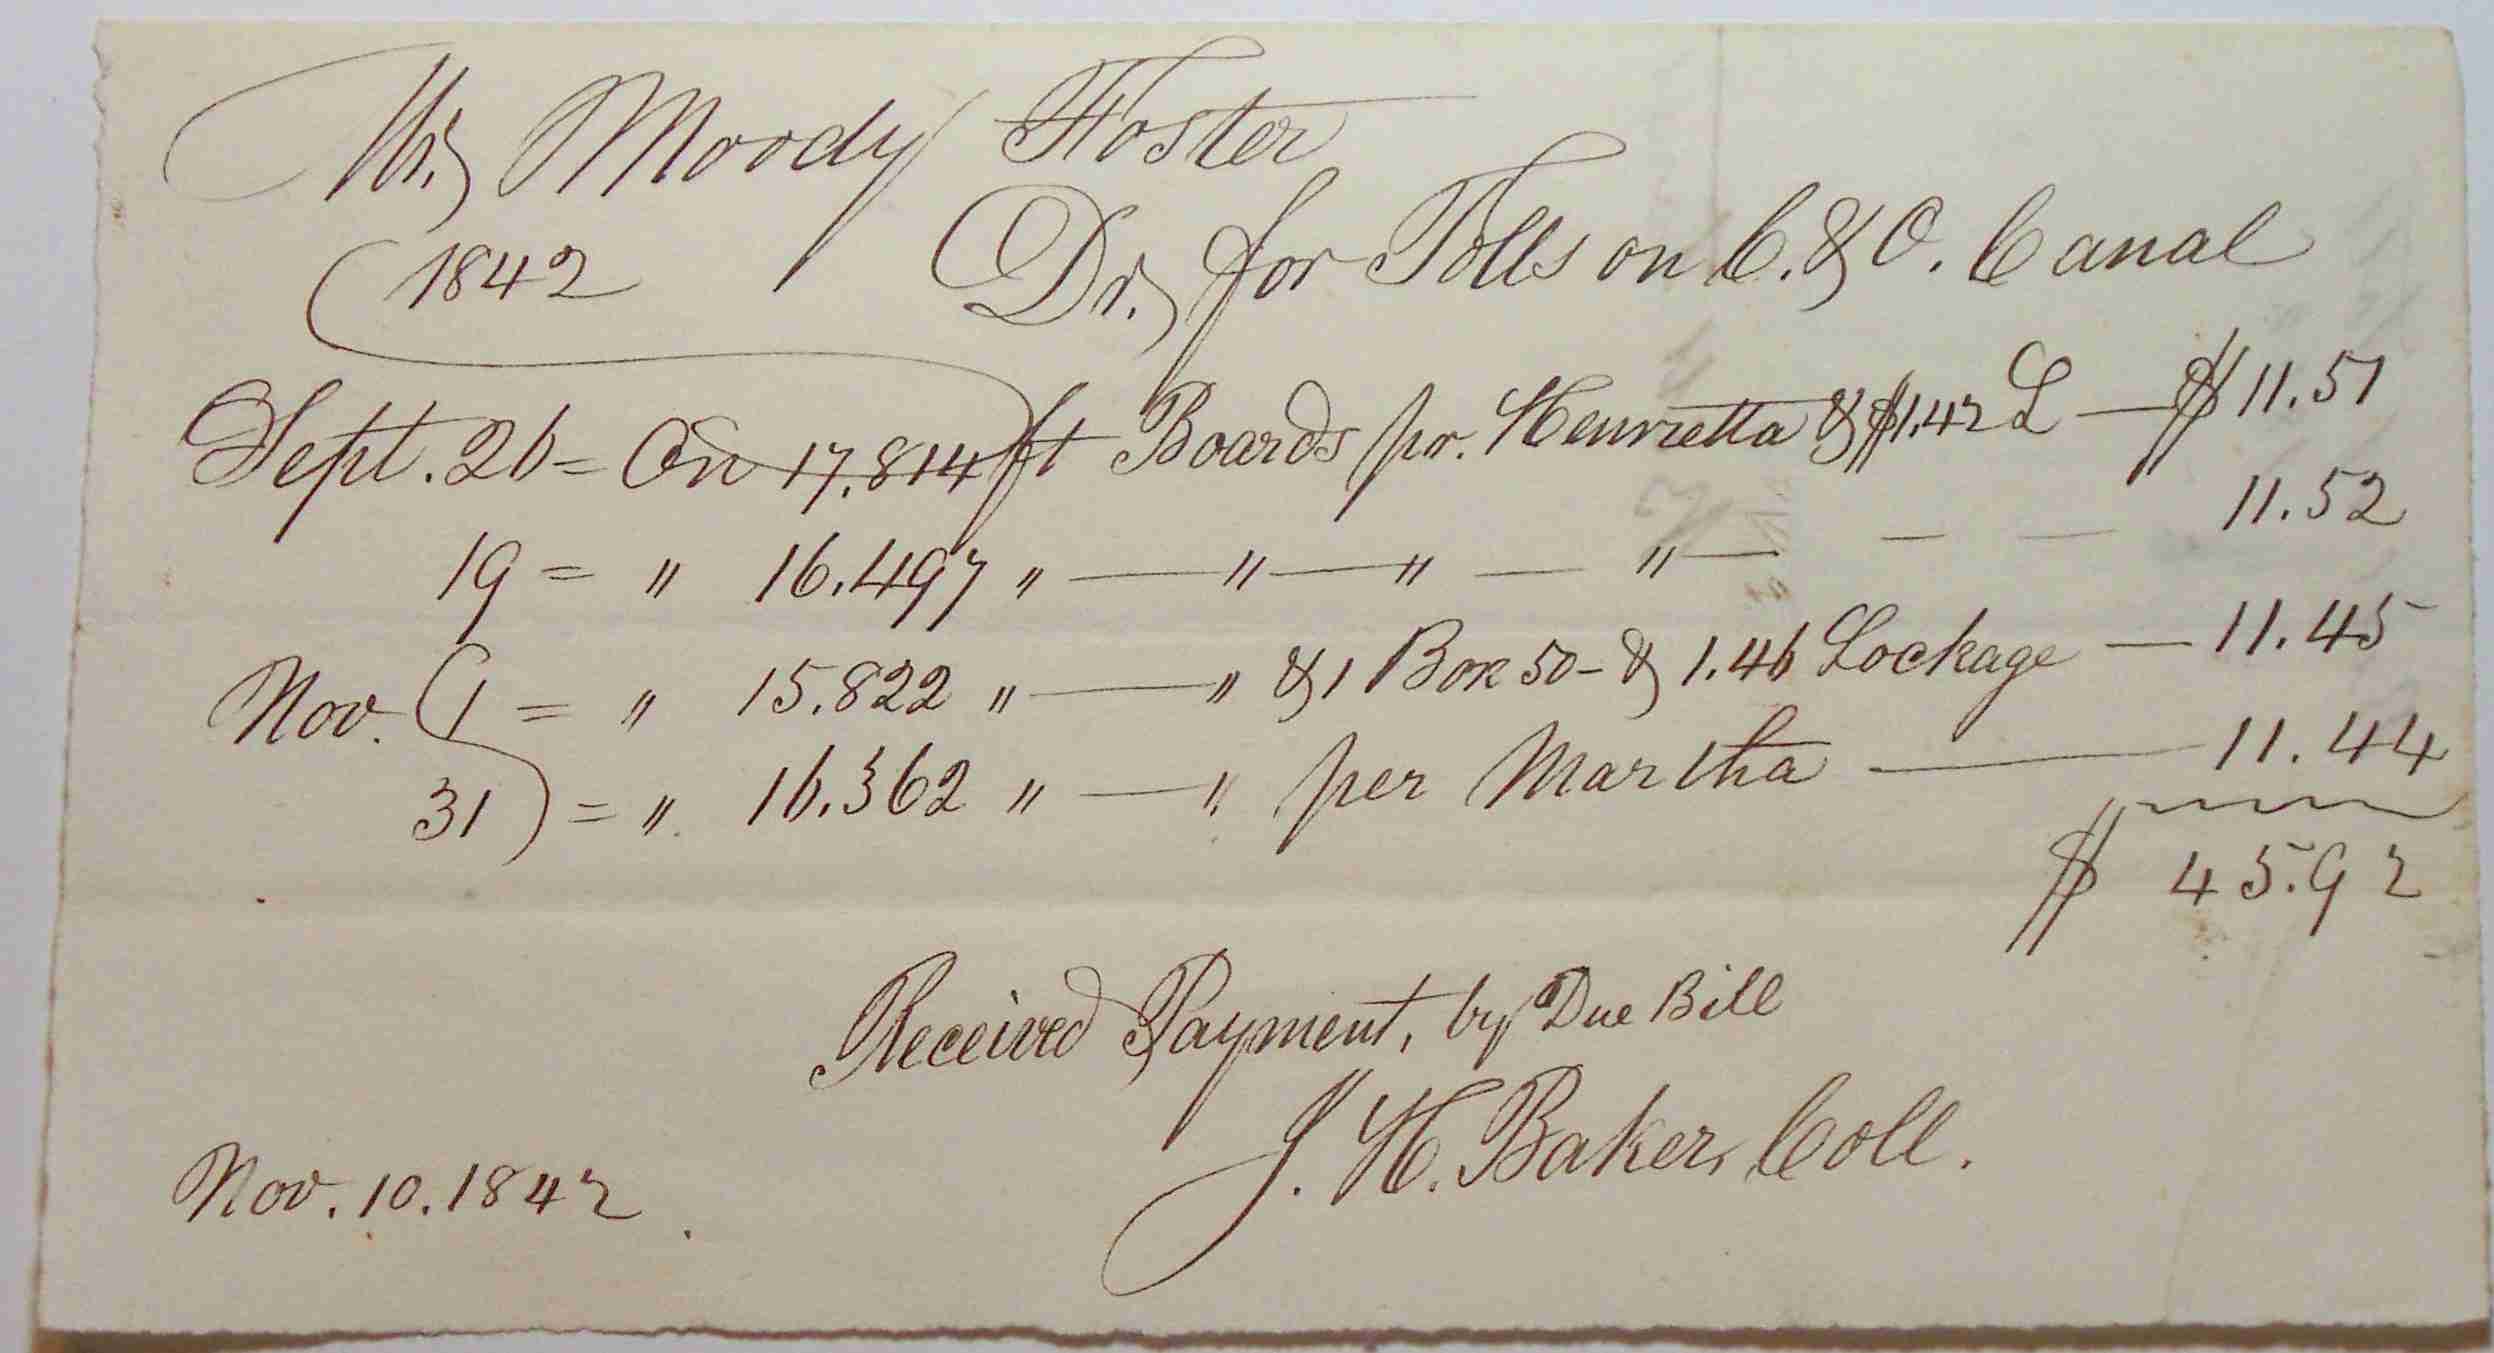 Mr. Moody Foster
1842 Dr. for Tolls on C. & O. Canal
Sept. 26 = On 17.814 ft Boards pr. Henrietta & $1.42 L — $ 11.51
19 = " 16.497 " — " — " — " — — — 11.52
Nov. 1 = " 15.822 " — " & 1 Box 50 - & 1.46 Lockage — 11.45
31 = " 16.362 " — " per Martha — 11.44
$ 45.92
Received Payment, by Due Bill
J. H. Baker, Coll.
Nov. 10. 1842